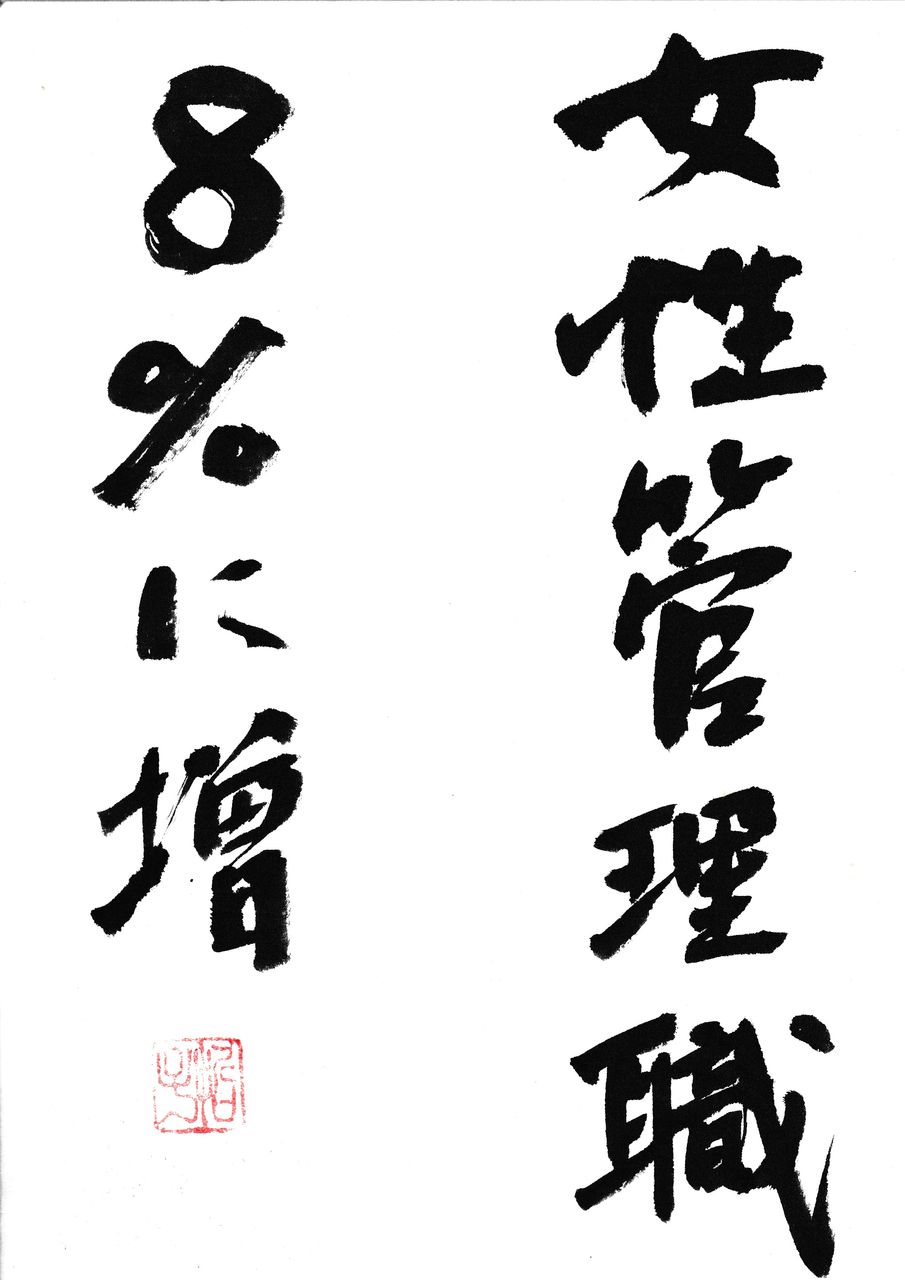 女性管理職
8%に増